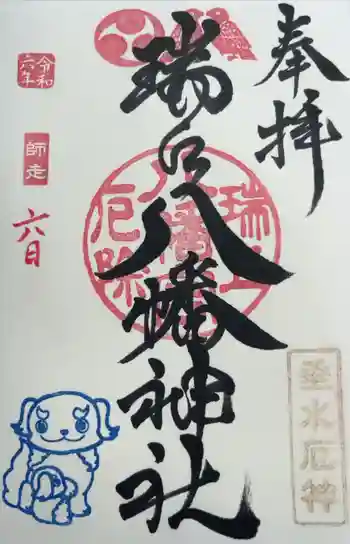 奉拝
瑞丘八幡神社
令和
六年
師走
六日
瑞丘
八幡
厄除
垂水厄神